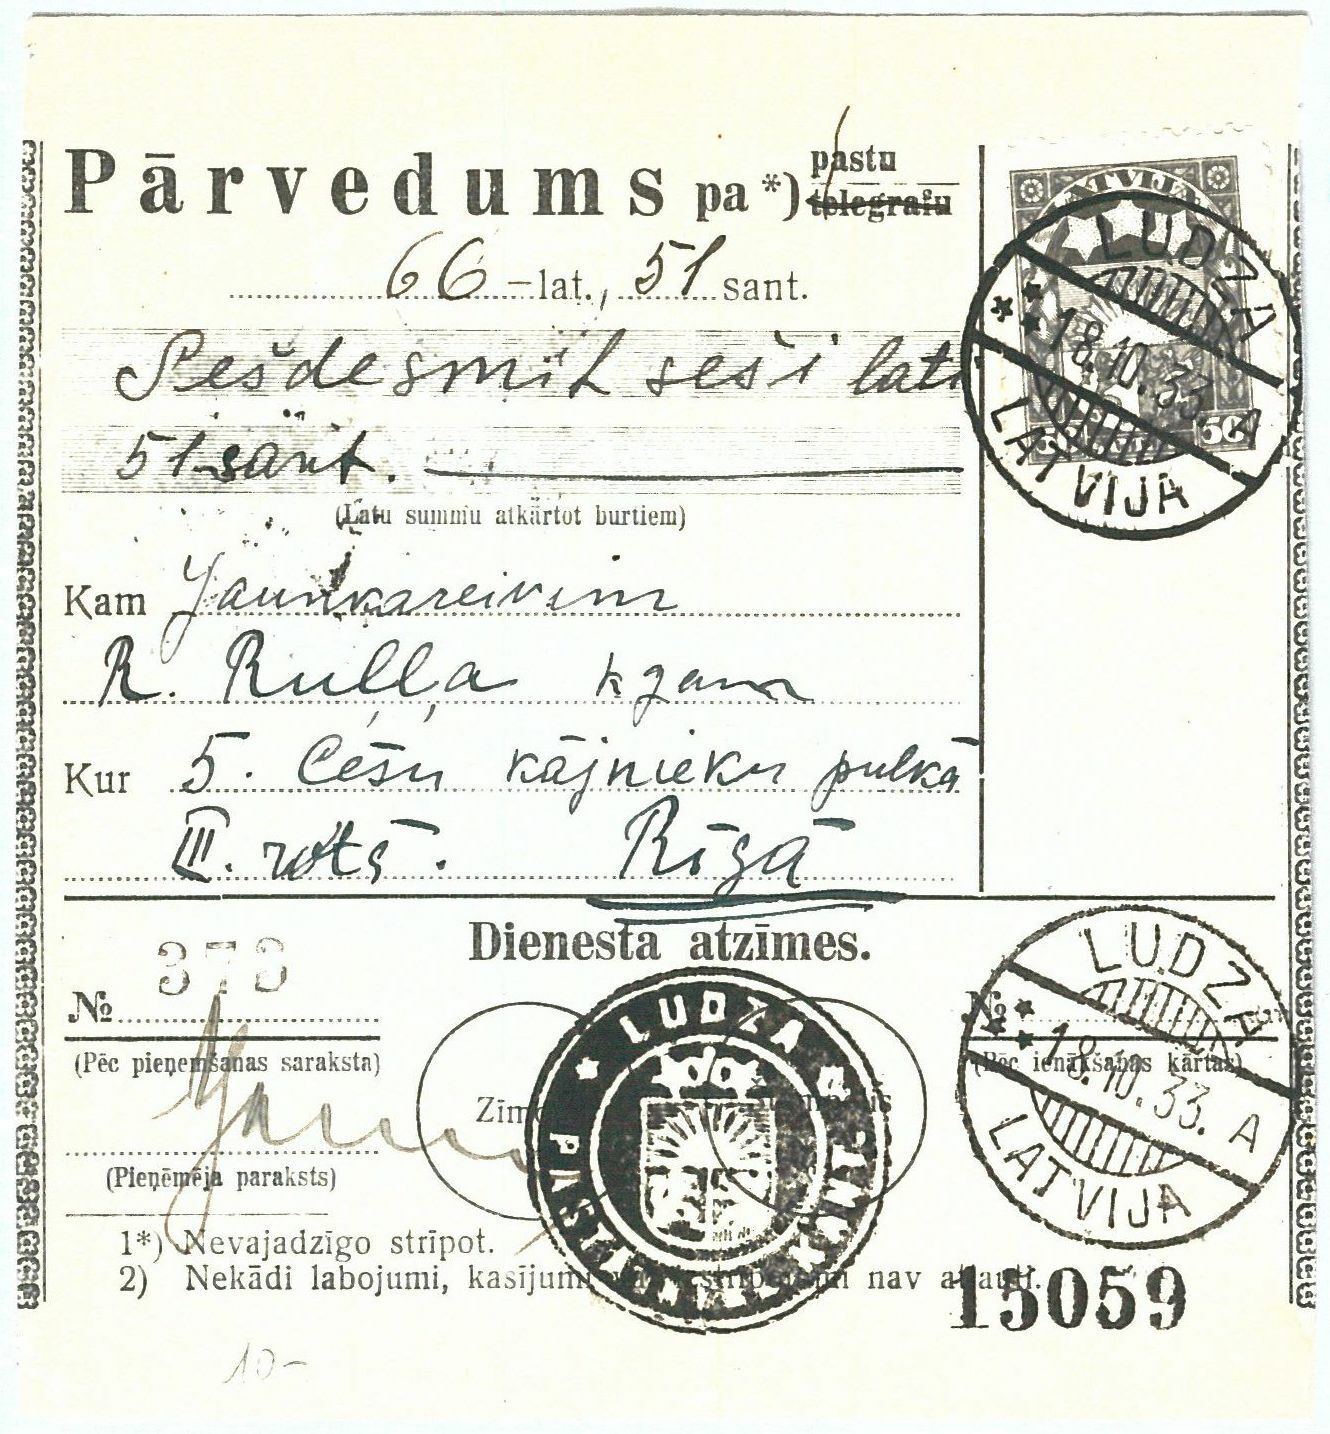 Pārvedums pa*) pastu
telegrafu
66 – lat., 51 sant.
Sešdesmit seši lati
51 sant.
(Latu summu atkārtot burtiem)
Kam Jaunkareivim
R. Ruļļa kgam
Kur 5. Cēsu kājnieku pulkā
III. rotā. Rīgā
LATVIJA
50
LUDZA
18.10.33. A
LATVIJA
Dienesta atzīmes.
373
№
(Pēc pieņemšanas saraksta)
(Pieņēmēja paraksts)
LUDZA
№
(Pēc ienākšanas kārtas)
LUDZA
18.10.33. A
LATVIJA
1*) Nevajadzīgo strīpot.
2) Nekādi labojumi, kasījumi nav atļauti.
15059
10-